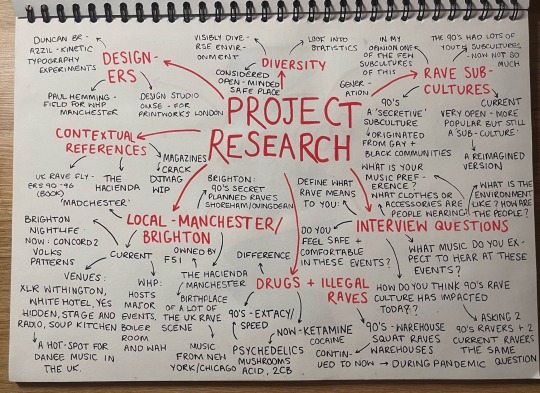 DUNCAN BR-
AZZIL - KINETIC
TYPOGRAPHY
EXPERIMENTS
DESIGN-
ERS
PAUL HEMMING -
FIELD FOR WHP
MANCHESTER
DESIGN STUDIO
ONSE - FOR
PRINTWORKS LONDON
VISIBLY DIVE-
RSE ENVIR-
ONMENT
DIVERSITY
LOOK INTO
STATISTICS
CONSIDERED
OPEN-MINDED
SAFE PLACE
IN MY
OPINION ONE
OF THE FEW
SUBCULTURES
OF THIS
GENER-
ATION
THE 90'S HAD LOTS OF
YOUTH SUBCULTURES
- NOW NOT SO
MUCH
RAVE SUB-
CULTURES
90'S
A 'SECRETIVE'
SUBCULTURE
ORIGINATED
FROM GAY +
BLACK COMMUNITIES
CURRENT
VERY OPEN - MORE
POPULAR BUT STILL
A 'SUB-CULTURE'
A REIMAGINED
VERSION
PROJECT
RESEARCH
CONTEXTUAL
REFERENCES
MAGAZINES
CRACK
DJMAG
WIP
UK RAVE FLY-
ERS 90-96
(BOOK)
THE
HACIENDA
'MADCHESTER'
LOCAL - MANCHESTER/
BRIGHTON
BRIGHTON:
90'S SECRET
PLANNED RAVES
SHOREHAM/OVINGDEAN
BRIGHTON
NIGHTLIFE
NOW: CONCORD2
VOLKS
PATTERNS
CURRENT
VENUES:
XLR WITHINGTON,
WHITE HOTEL, YES
HIDDEN, STAGE AND
RADIO, SOUP KITCHEN
A HOT-SPOT FOR
DANCE MUSIC IN
THE UK.
WHP:
HOSTS
MAJOR
EVENTS,
BOILER
ROOM
AND WAH
OWNED BY
FSI
THE HACIENDA
/MANCHESTER
BIRTHPLACE
OF A LOT OF
THE UK RAVE
SCENE
MUSIC
FROM NEW
YORK/CHICAGO
DRUGS + ILLEGAL
RAVES
DIFFERENCE
90'S - EXTACY/
SPEED
NOW - KETAMINE
COCAINE
PSYCHEDELICS
MUSHROOMS
ACID, 2CB
90'S - WAREHOUSE
SQUAT RAVES
WAREHOUSES
CONTIN-
UED TO NOW → DURING PANDEMIC
INTERVIEW QUESTIONS
DEFINE WHAT
RAVE MEANS
TO YOU:
DO YOU
FEEL SAFE +
COMFORTABLE
IN THESE EVENTS?
WHAT IS YOUR
MUSIC PREF-
ERENCE?
WHAT CLOTHES OR
ACCESSORIES ARE
PEOPLE WEARING?
WHAT IS THE
ENVIRONMENT
LIKE? HOW ARE
THE PEOPLE?
WHAT MUSIC DO YOU EX-
PECT TO HEAR AT THESE
EVENTS?
HOW DO YOU THINK 90'S RAVE
CULTURE HAS IMPACTED
TODAY?
ASKING 2
90'S RAVERS + 2
CURRENT RAVERS
THE SAME
QUESTION